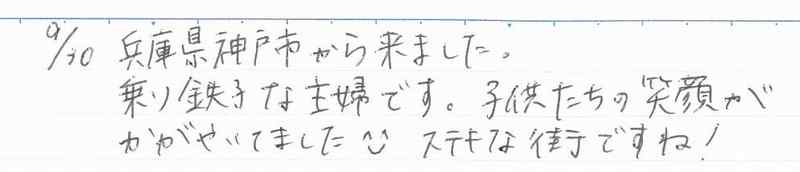 9/30 兵庫県神戸市から来ました。
乗り鉄子な主婦です。子供たちの笑顔が
かがやいてました◡̈ ステキな街ですね!